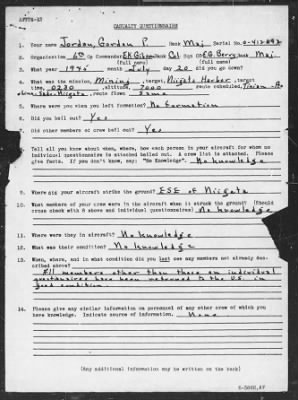 AFPPA-27
CASUALTY QUESTIONNAIRE
1. Your name Jordan, Gordon P. Rank Maj Serial No. 0-412892
2. Organization 6th Gp Commander Rank Col Sqn CO Rank Maj.
(full name) (full name)
3. What year 1945 month July day 20 did you go down?
4. What was the mission, Mining, Niigata Harbor, target,
time, 0230, altitude, 7000 route scheduled, Tinian-
Niigata, route flown Same
5. Where were you when you left formation? No formation
6. Did you bail out? Yes
7. Did other members of crew bail out? Yes
8. Tell all you know about when, where, how each person in your aircraft for whom no
individual questionnaire is attached bailed out. A crew list is attached. Please
give facts. If you don't know, say: "No Knowledge". No knowledge
9. Where did your aircraft strike the ground? ESE of Niigata
10. What members of your crew were in the aircraft when it struck the ground? (Should
cross check with 8 above and individual questionnaires) No knowledge
11. Where were they in aircraft? No knowledge
12. What was their condition? No knowledge
13. When, where, and in what condition did you last see any members not already des-
cribed above?
All members other than those on individual
questionnaires have been returned to the U.S. in
good condition.
14. Please give any similar information on personnel of any other crew of which you
have knowledge. Indicate source of information. None
(Any additional information may be written on the back)